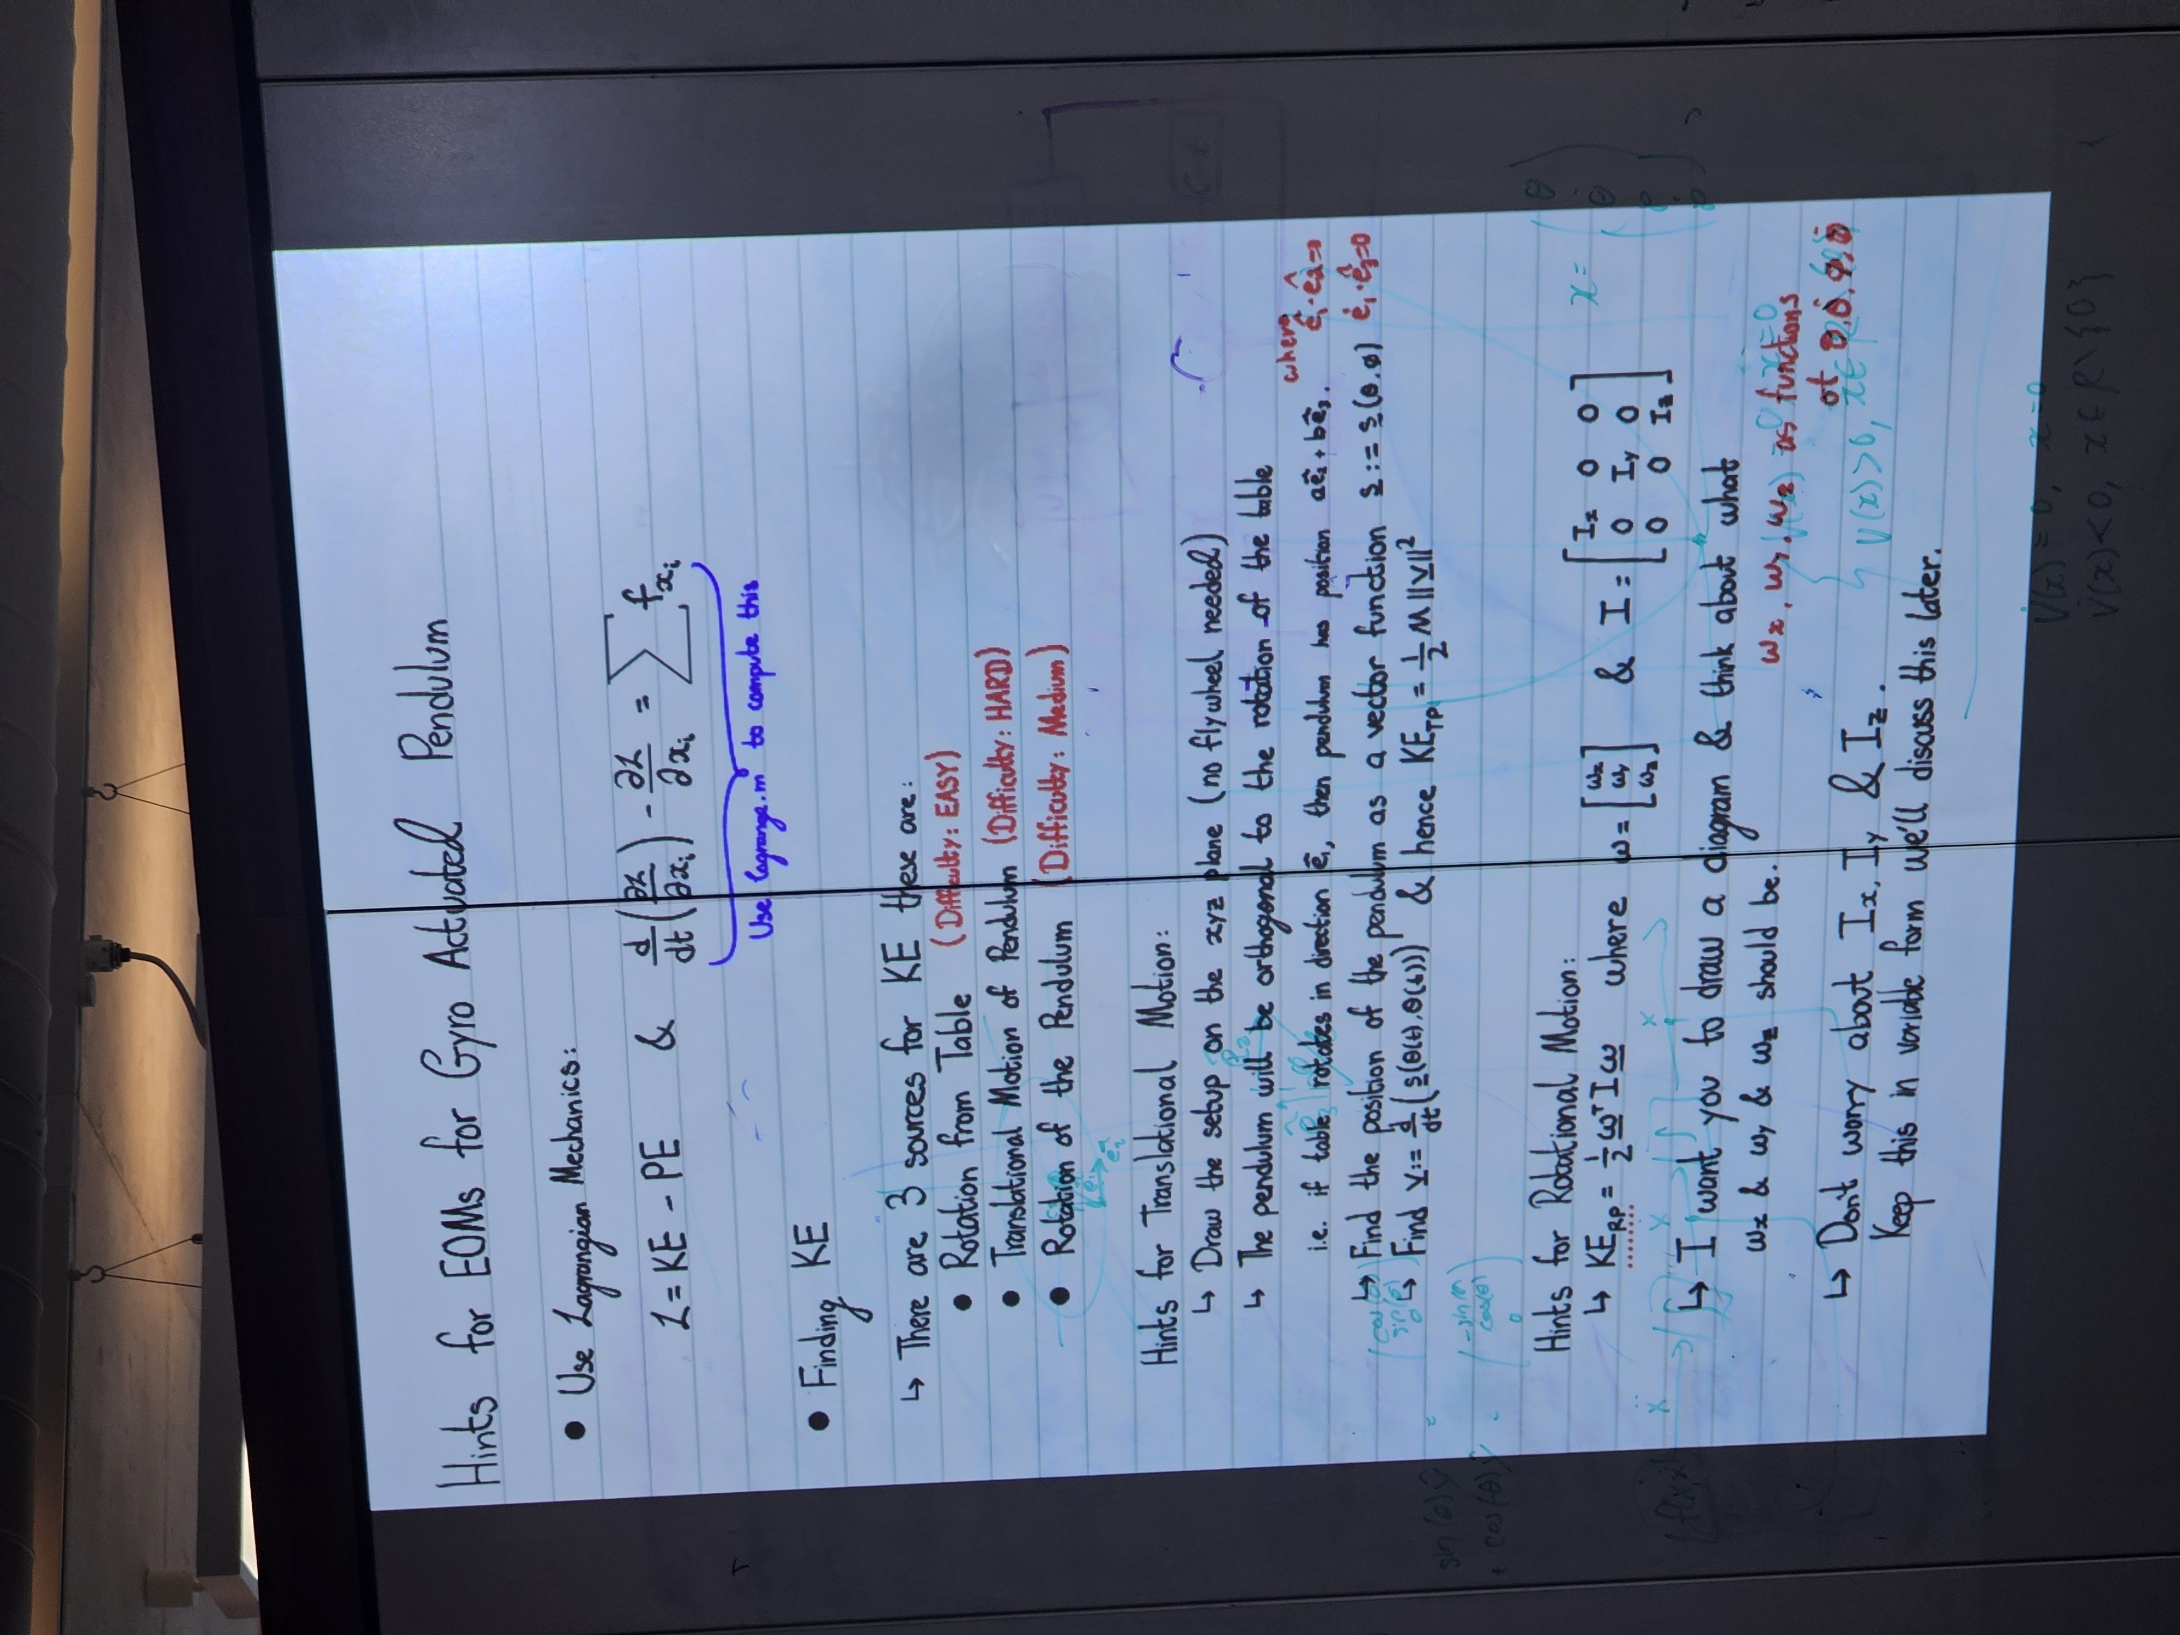 Hints for EOMs for Gyro Actuated Pendulum
• Use Lagrangian Mechanics:
L = KE - PE & d/dt(∂L/∂xᵢ) - ∂L/∂xᵢ = ∑ f_xᵢ
Use lagrange.m to compute this
• Finding KE
↳ There are 3 sources for KE these are:
• Rotation from Table (Difficulty: EASY)
• Translational Motion of Pendulum (Difficulty: HARD)
• Rotation of the Pendulum (Difficulty: Medium)
ê₂
Hints for Translational Motion:
↳ Draw the setup on the xyz plane (no flywheel needed)
↳ The pendulum will be orthogonal to the rotation of the table
where
i.e. if table rotates in direction ê₁, then pendulum has position aê₂ + bê₃. ê₁·ê₂=0
↳ Find the position of the pendulum as a vector function s := s(θ,ø) ê₁·ê₃=0
↳ Find v := d/dt(s(θ(t),θ(t))) & hence KE_TP = ½ M ||v||²
sin(θ)
+ cos(-θ)
cos(θ)
0
Hints for Rotational Motion:
↳ KE_RP = ½ ωᵀ I ω where ω = [ωx ωy ωz] & I = [Ix 0 0
0 Iy 0
0 0 Iz]
x =
↳ I want you to draw a diagram & think about what
ωx & ωy & ωz should be.
ωx, ωy, ωz as functions
↳ Don't worry about Ix, Iy & Iz.
V(x) > 0,
Keep this in variable form we'll discuss this later.
V̇(x) = 0, x = 0
V̇(x) < 0, x ∈ R\{0}